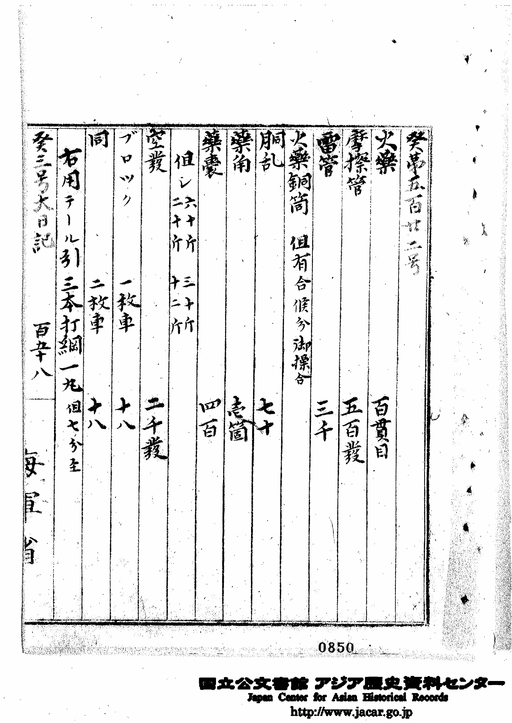 癸第五百廿二号
火藥 百貫目
摩擦管 五百發
雷管 三千
火藥銅筒 但有合候分御操合
胴乱 七十
藥角 壱箇
藥嚢 四百
但シ 六十斤 三十斤
二十斤 十二斤
空發 二千發
ブロック 一枚車 十八
同 二枚車 十八
右用テール引三本打綱一丸 但七分至
癸三号大日記 百五十八 海軍省
0850
国立公文書館 アジア歴史資料センター
Japan Center for Asian Historical Records
http://www.jacar.go.jp